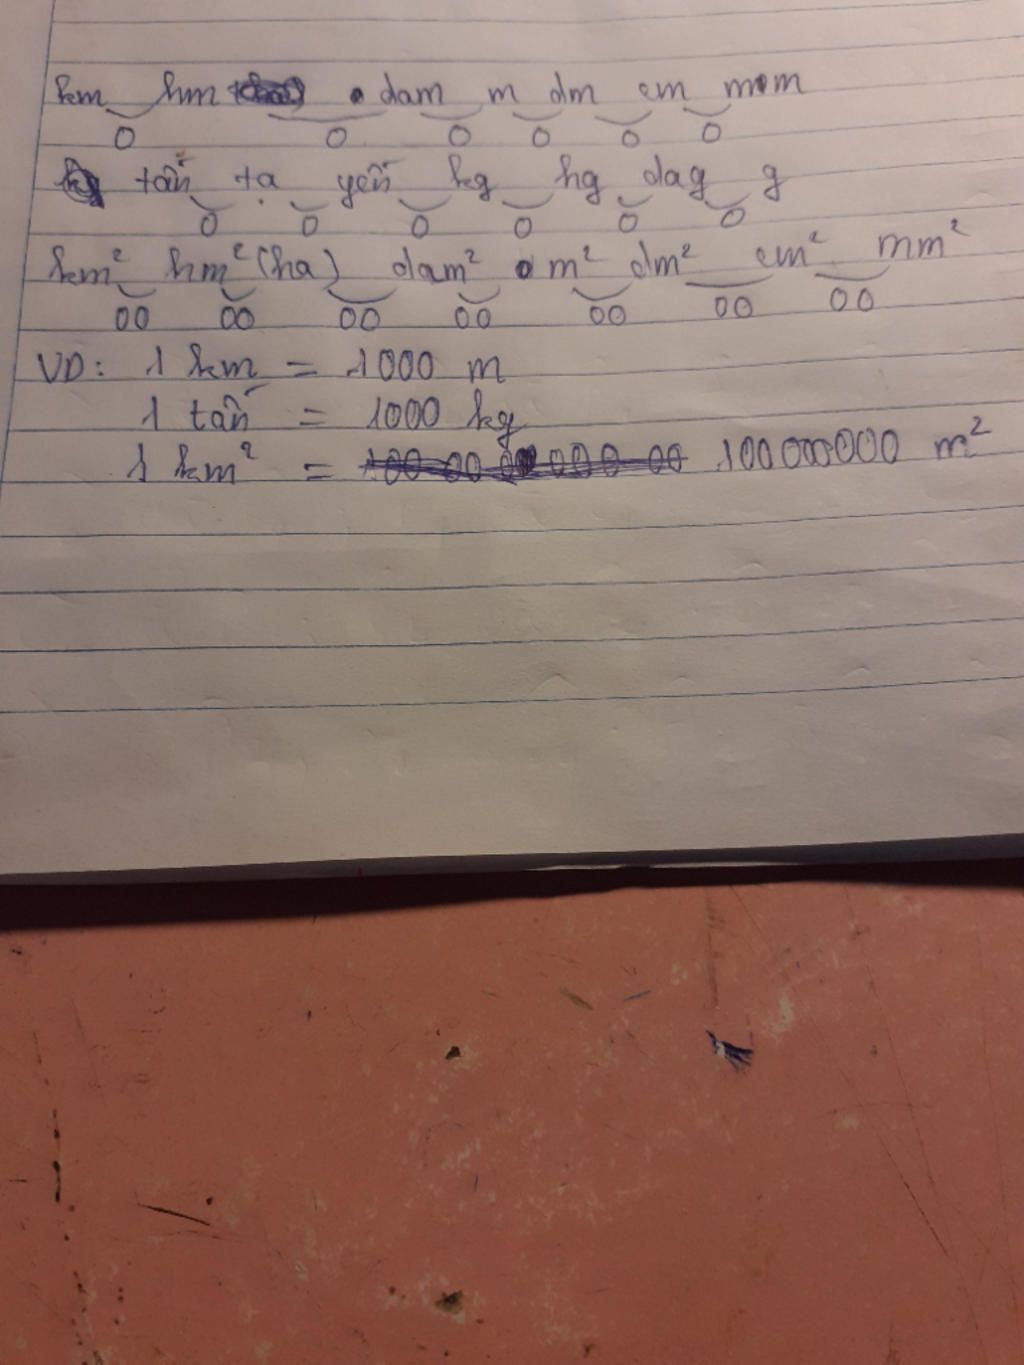 km hm dam m dm cm mm
0 0 0 0 0 0
tấn tạ yến kg hg dag g
0 0 0 0 0 0
km² hm² (ha) dam² m² dm² cm² mm²
00 00 00 00 00 00 00
VD: 1 km = 1000 m
1 tấn = 1000 kg
1 km² = m²